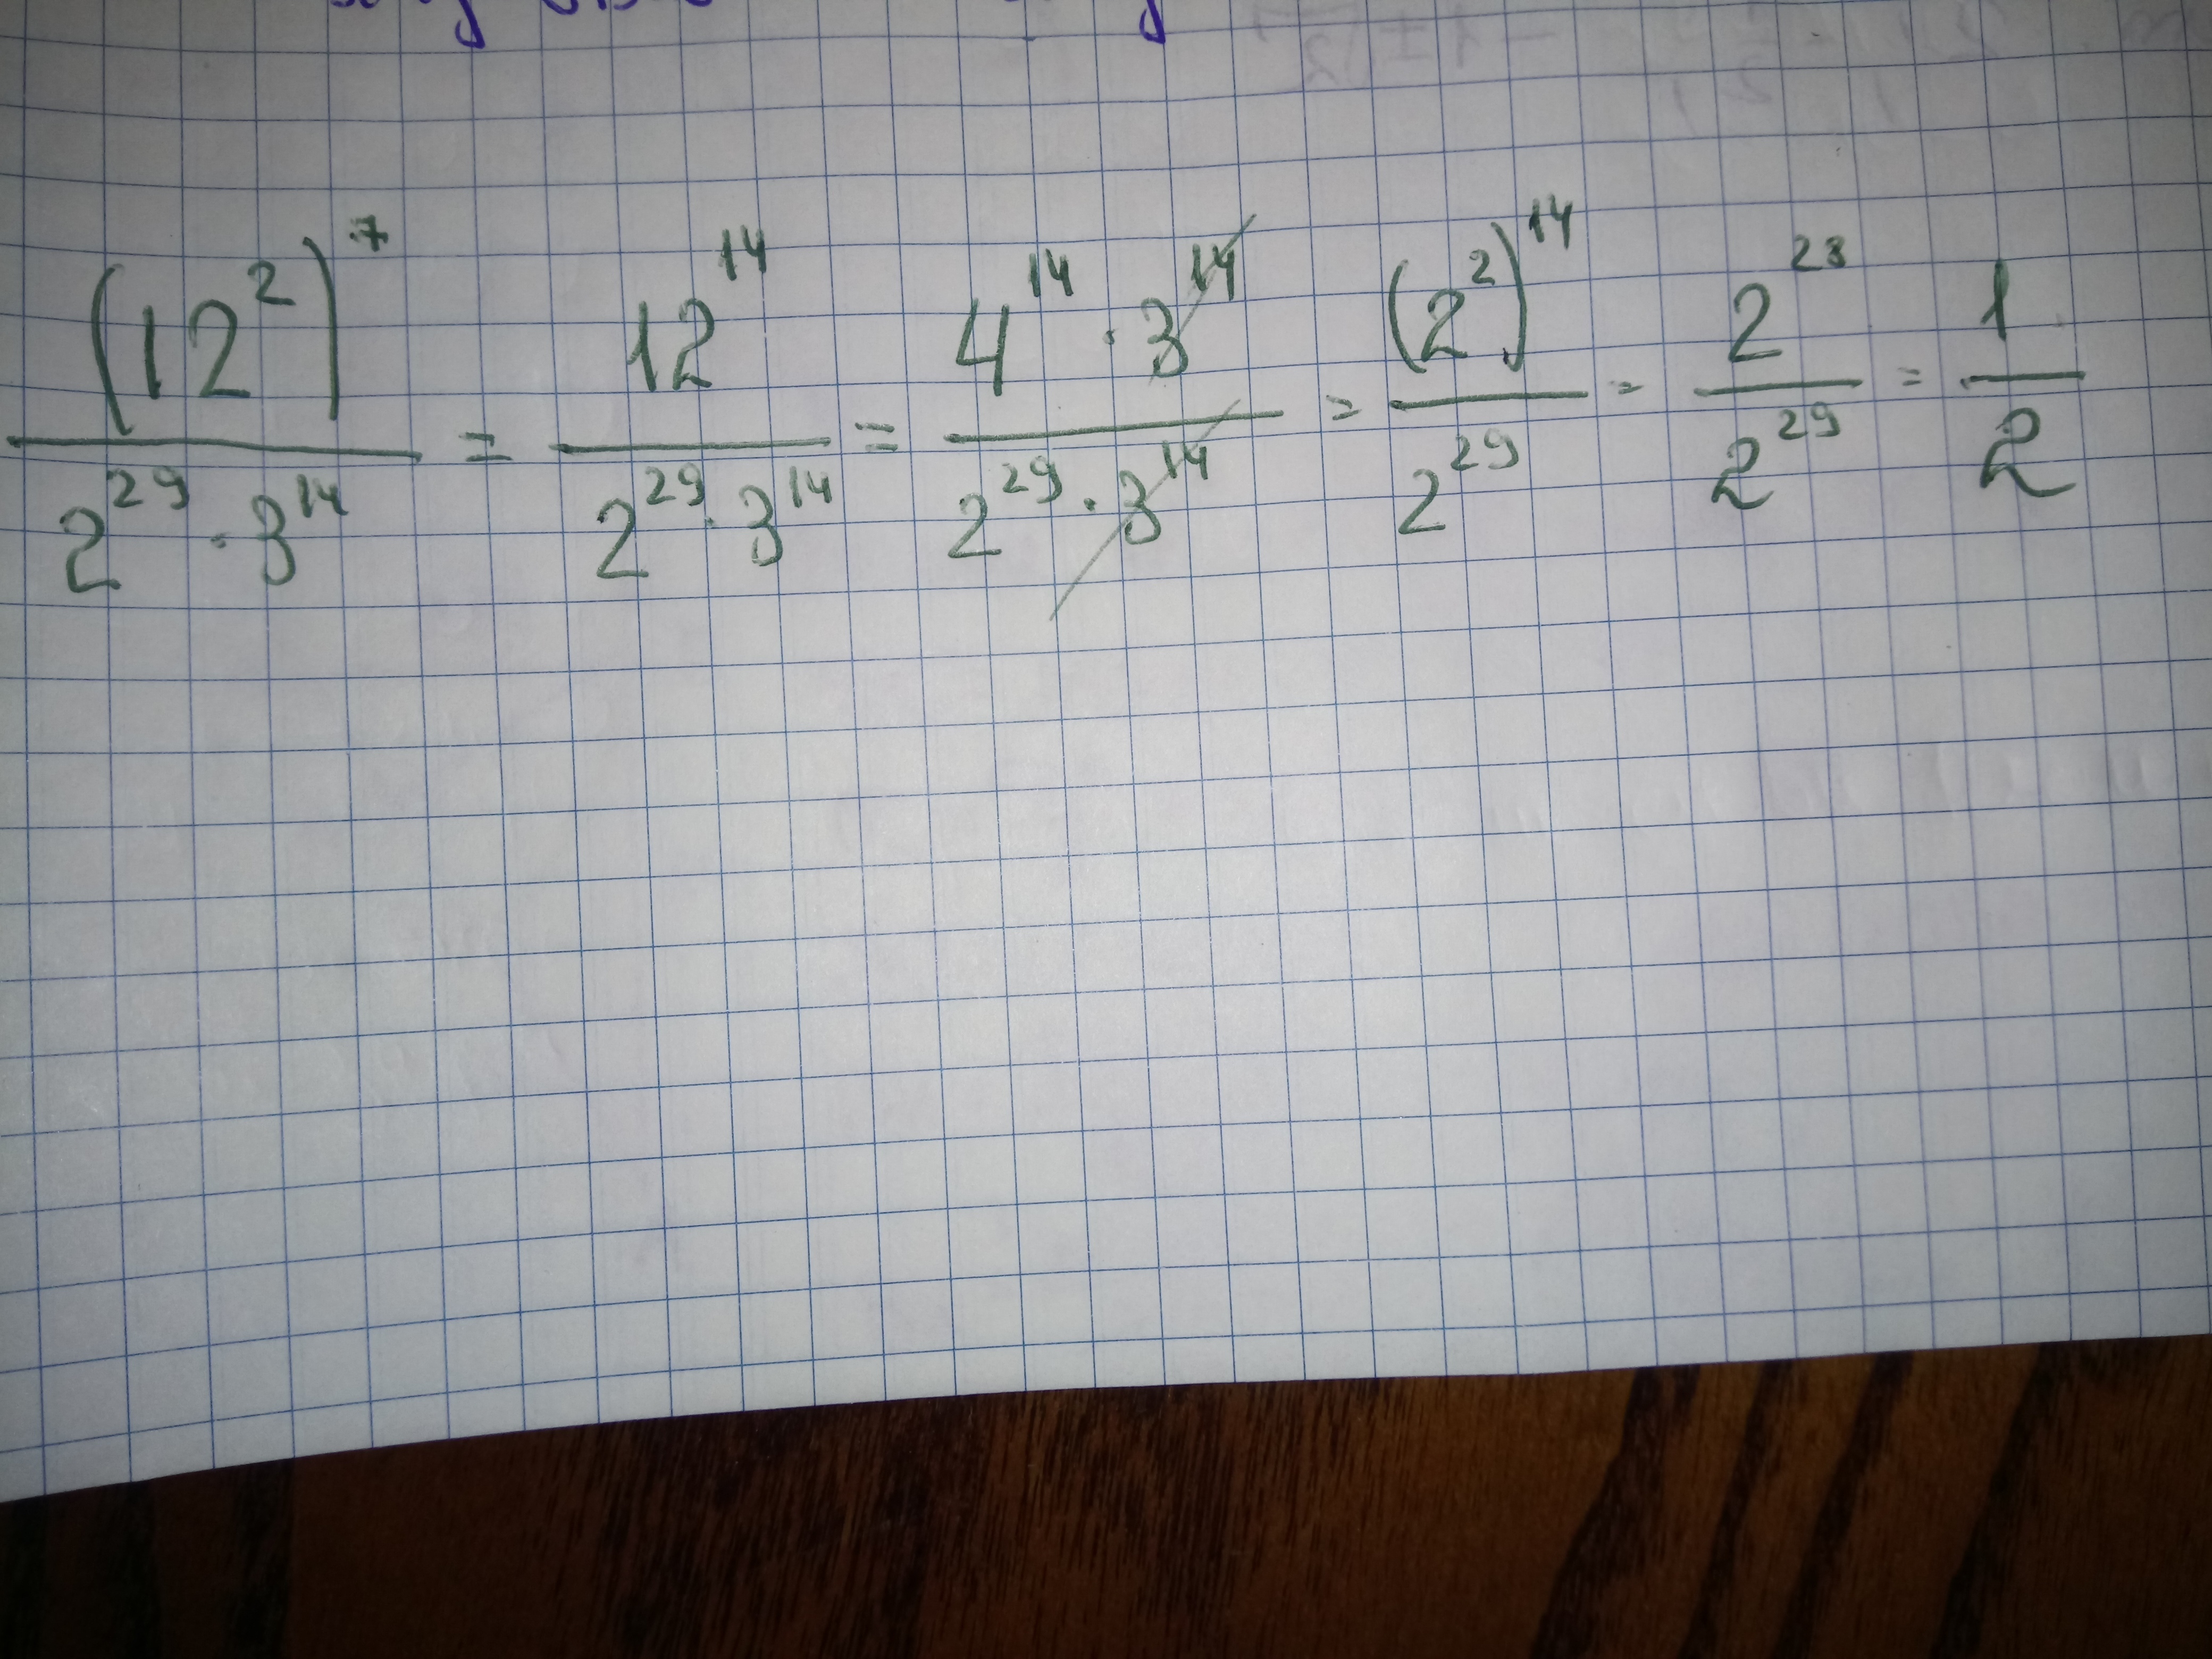 (12²)⁷ / (2²⁹ · 3¹⁴) = 12¹⁴ / (2²⁹ · 3¹⁴) = (4¹⁴ · 3¹⁴) / (2²⁹ · 3¹⁴) = (2²)¹⁴ / 2²⁹ = 2²⁸ / 2²⁹ = 1 / 2